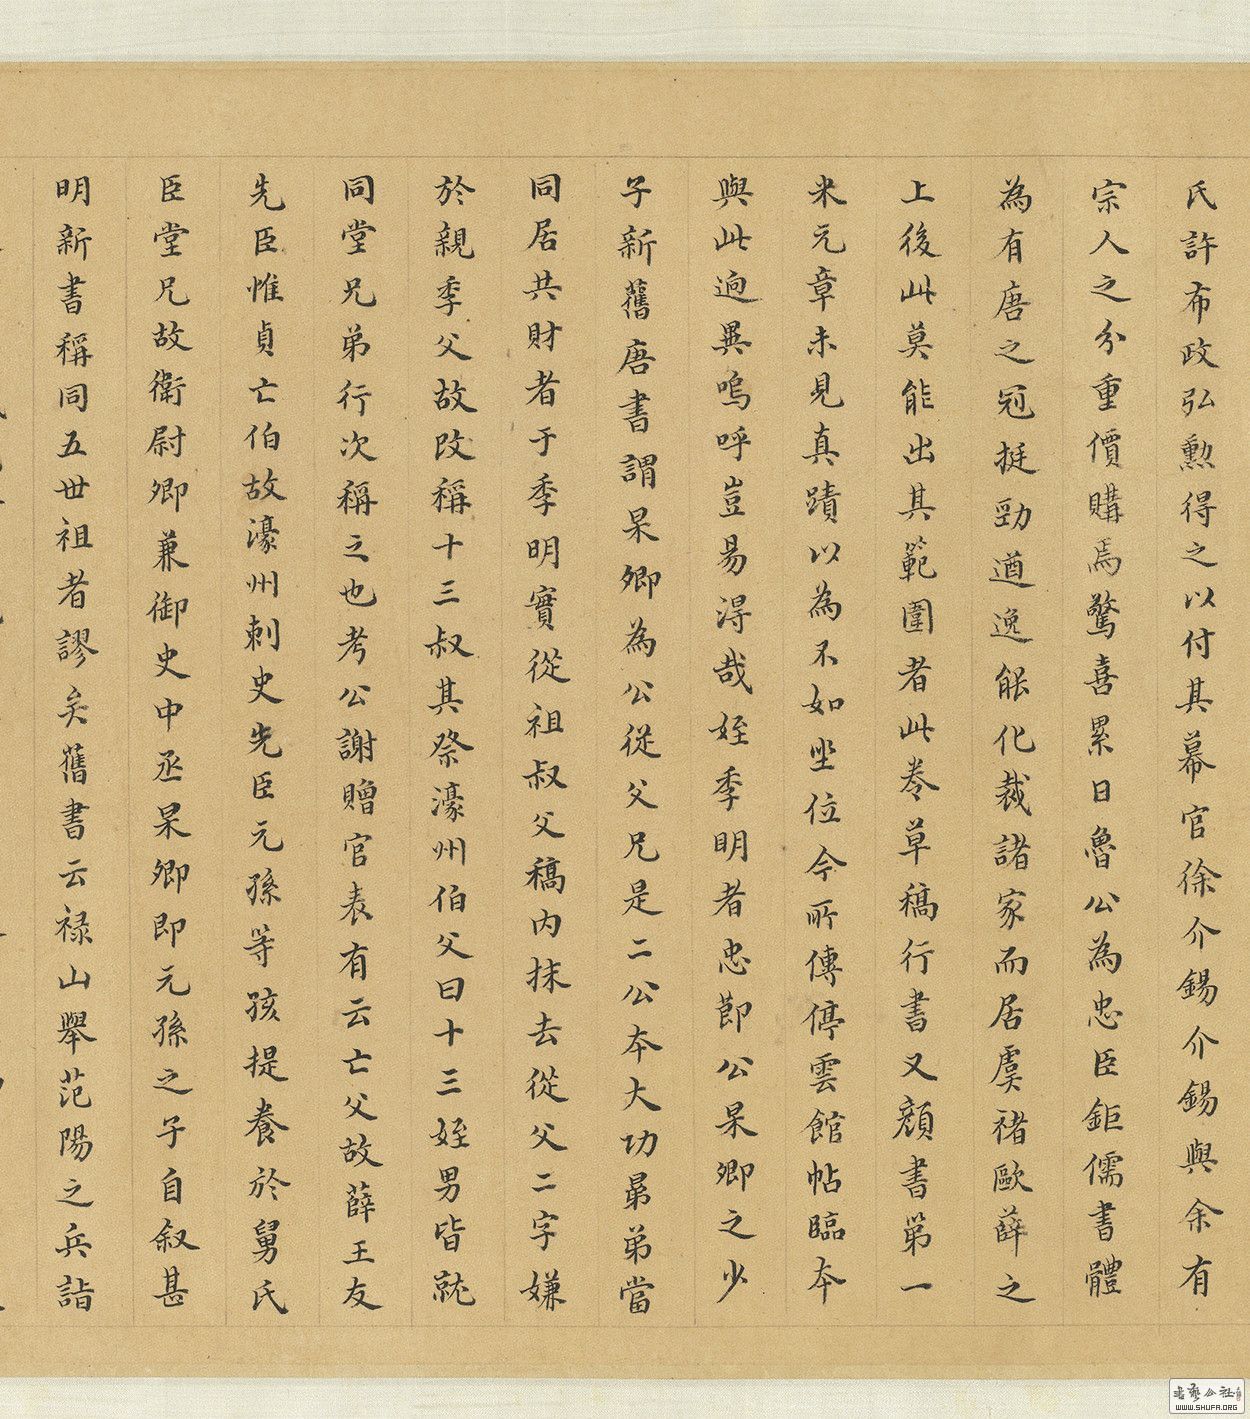 氏許布政弘勲得之以付其幕官徐介錫介錫與余有
宗人之分重價購焉驚喜累日魯公為忠臣鉅儒書體
為有唐之冠挺勁遒逸能化裁諸家而居虞褚歐薛之
上後此莫能出其範圍者此卷草稿行書又顏書第一
米元章未見真蹟以為不如坐位今所傳停雲館帖臨本
與此逈異嗚呼豈易得哉姪季明者忠節公杲卿之少
子新舊唐書謂杲卿為公從父兄是二公本大功昴弟當
同居共財者于季明實從祖叔父稿內抹去從父二字嫌
於親季父故改稱十三叔其祭濠州伯父曰十三姪男皆就
同堂兄弟行次稱之也考公謝贈官表有云亡父故薛王友
先臣惟貞亡伯故濠州刺史先臣元孫等孩提養於舅氏
臣堂兄故衛尉卿兼御史中丞杲卿即元孫之子自叙甚
明新書稱同五世祖者謬矣舊書云祿山舉范陽之兵詣
書藝公社
WWW.SHUFA.ORG